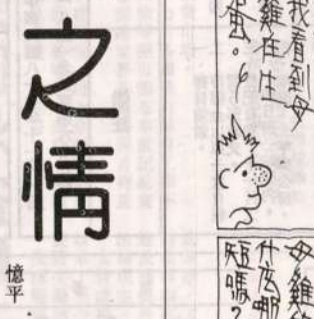 我看到母
雞在生
蛋。
母雞
什麼
短嗎？
之情
憶平